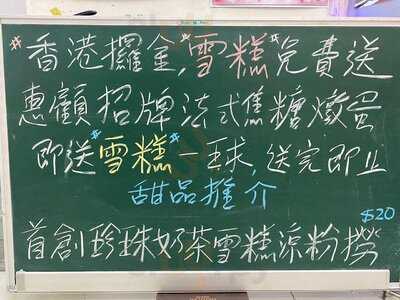 *香港攞金,*雪糕*免費送
惠顧招牌法式焦糖燉蛋
即送*雪糕*一球,送完即止
甜品推介
$20
首創珍珠奶茶雪糕涼粉撈